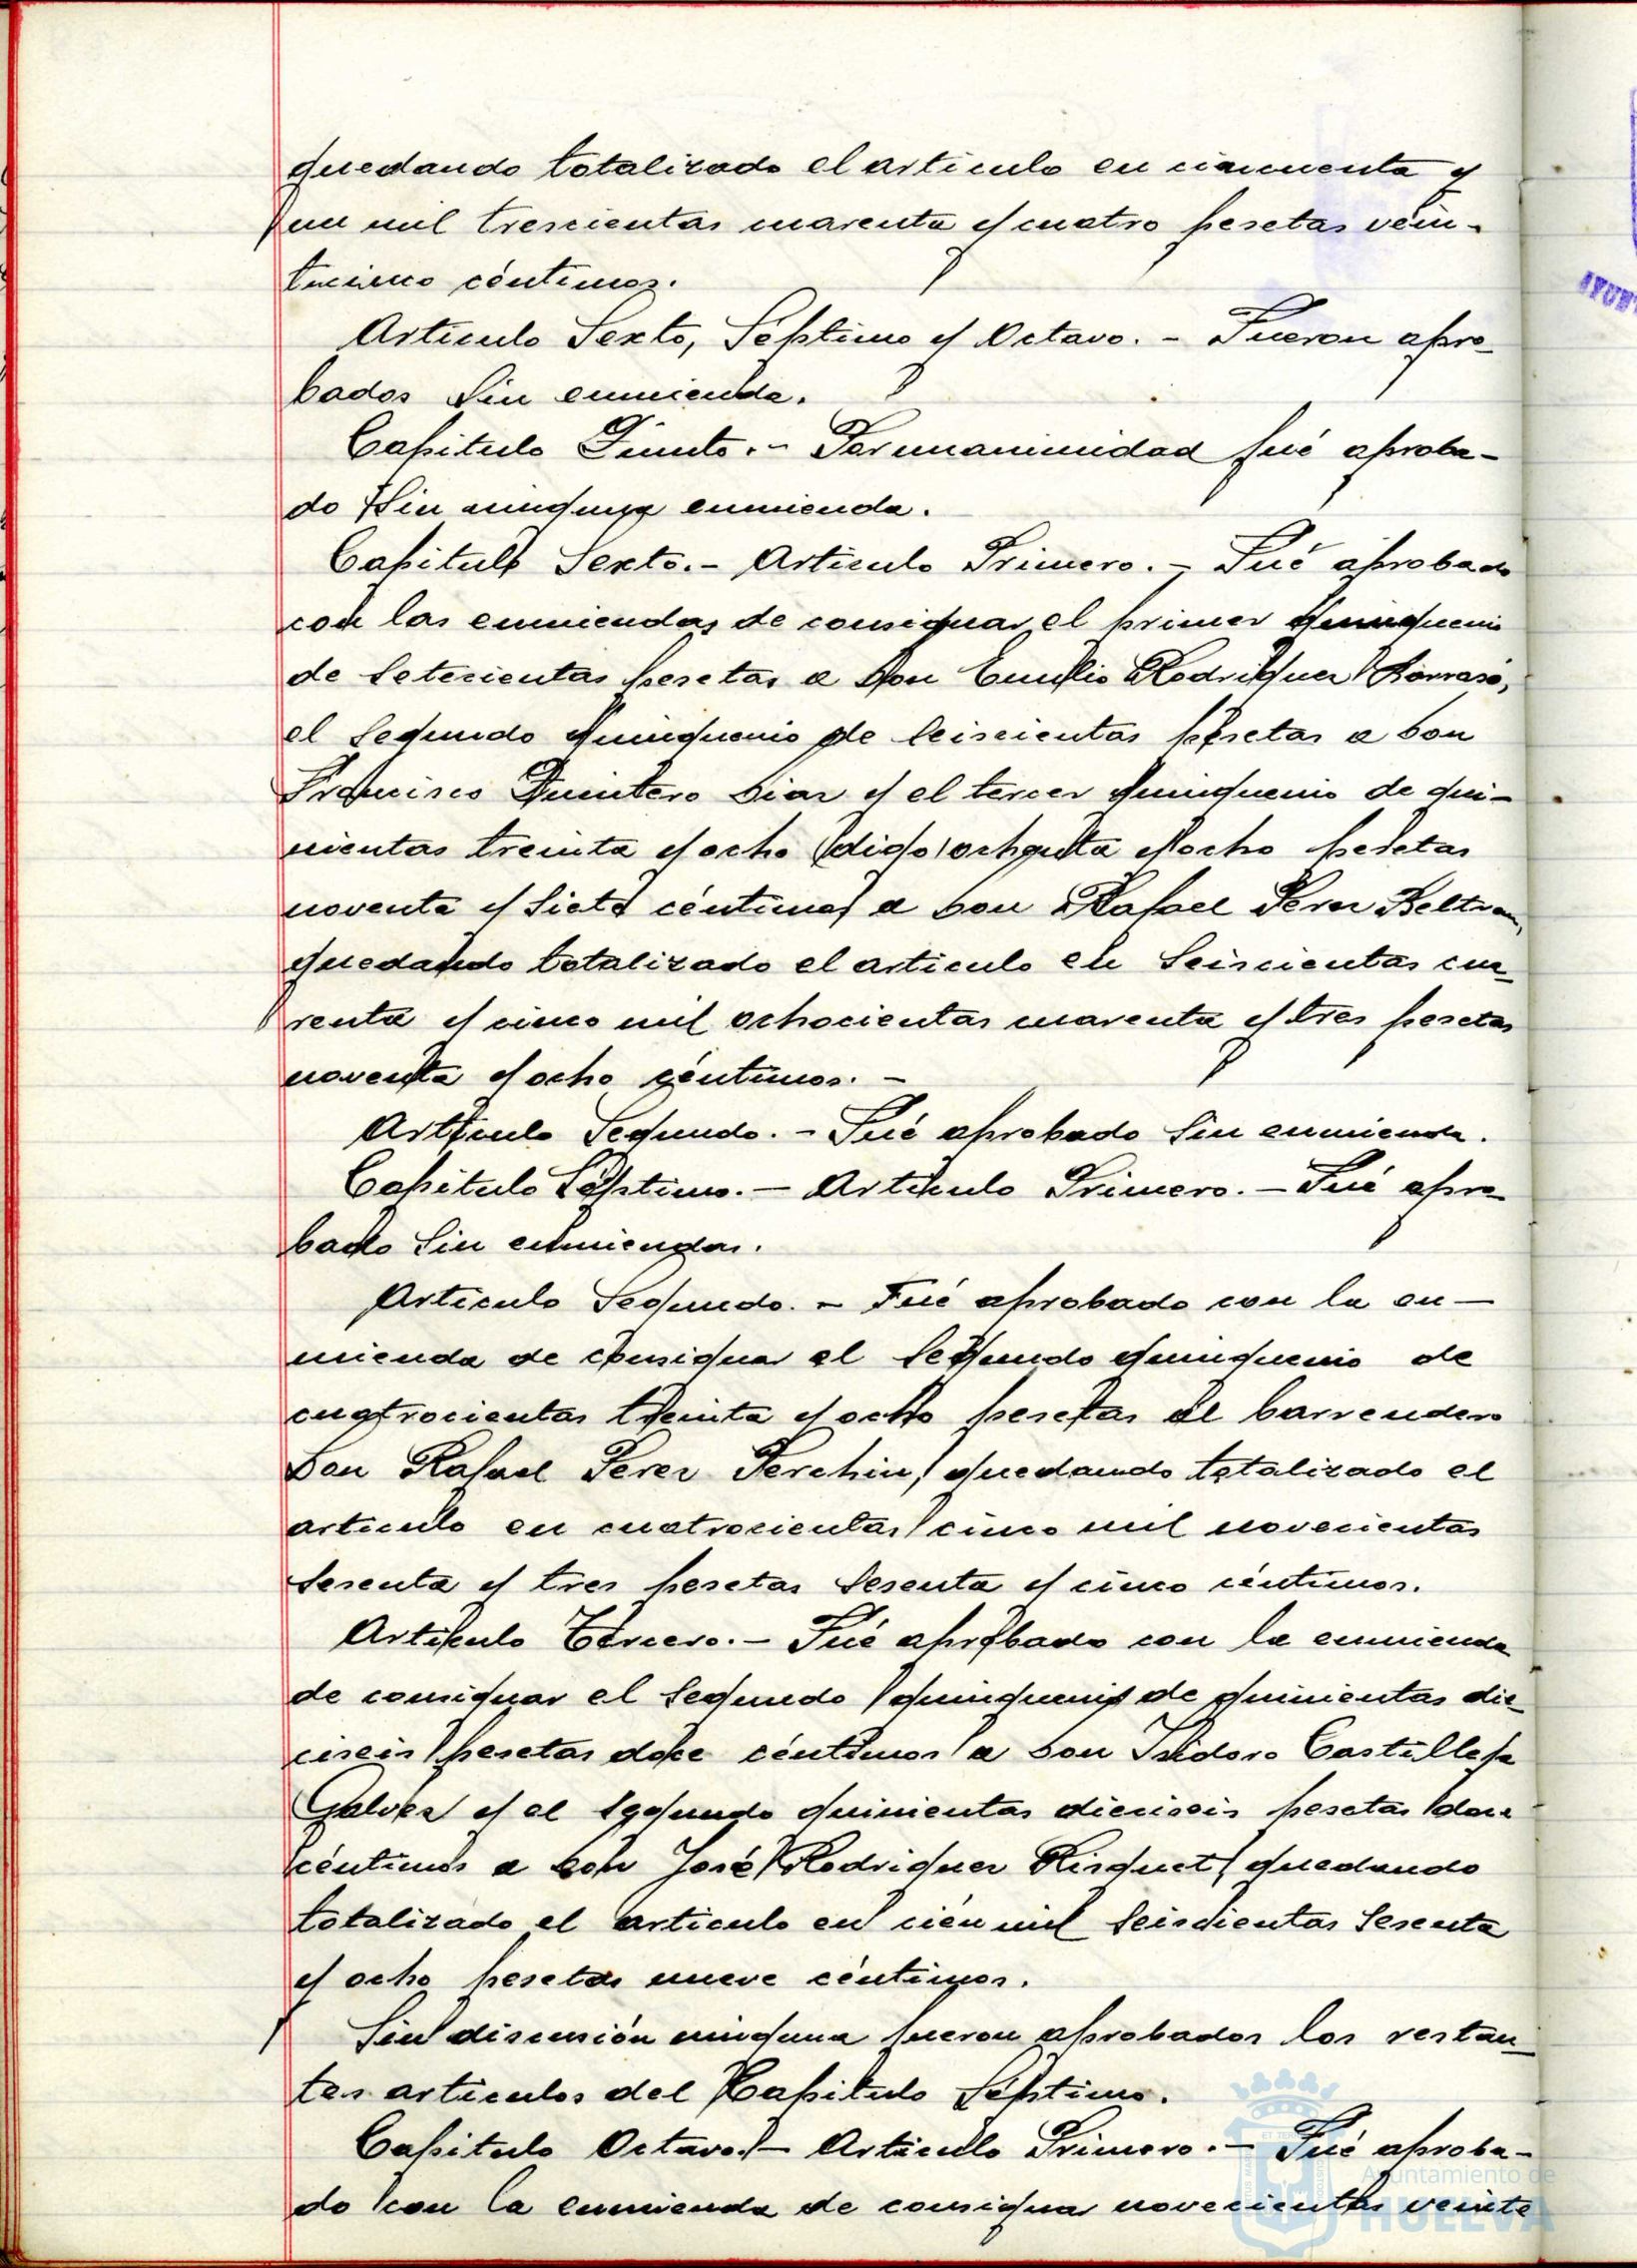 quedando totalizado el artículo en cincuenta y
un mil trescientas cuarenta y cuatro pesetas vein-
ticinco céntimos.
Artículo Sexto, Séptimo y Octavo. - Fueron apro-
bados sin enmienda.
Capitulo Quinto. - Por unanimidad fué aproba-
do sin ninguna enmienda.
Capitulo Sexto. - Artículo Primero. - Fué aprobado
con las enmiendas de consignar el primer quinquenio
de setecientas pesetas a Don Emilio Rodriguez
el segundo quinquenio de seiscientas pesetas a Don
Francisco Quintero Diaz y el tercer quinquenio de qui-
nientas treinta y ocho (digo) ochenta y ocho pesetas
noventa y siete céntimos a Don Rafael Perez Beltran,
quedando totalizado el artículo en seiscientas cua-
renta y cinco mil ochocientas cuarenta y tres pesetas
noventa y ocho céntimos. -
Artículo Segundo. - Fué aprobado sin enmienda.
Capitulo Séptimo. - Artículo Primero. - Fué apro-
bado sin enmiendas.
Artículo Segundo. - Fué aprobado con la en-
mienda de consignar el segundo quinquenio de
cuatrocientas treinta y ocho pesetas al barrendero
Don Rafael Perez Perchin, quedando totalizado el
artículo en cuatrocientas cinco mil novecientas
sesenta y tres pesetas sesenta y cinco céntimos.
Artículo Tercero. - Fué aprobado con la enmienda
de consignar el segundo quinquenio de quinientas die-
ciseis pesetas doce céntimos a Don Isidoro Castilleja
Galvez y el segundo quinientas dieciseis pesetas doce
céntimos a Don José Rodriguez Risquet, quedando
totalizado el artículo en cien mil seiscientas sesenta
y ocho pesetas nueve céntimos.
Sin discusión ninguna fueron aprobados los restan-
tes artículos del Capitulo Séptimo.
Capitulo Octavo. - Artículo Primero. - Fué aproba-
do con la enmienda de consignar novecientas veinte
Ayuntamiento de
HUELVA